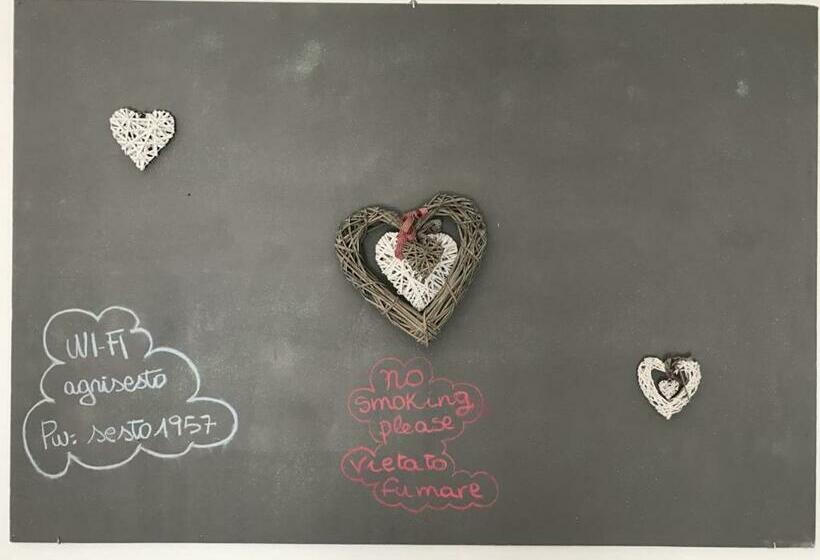 WI-FI
agrisesto
Pw: sesto1957
no
smoking
please
vietato
fumare